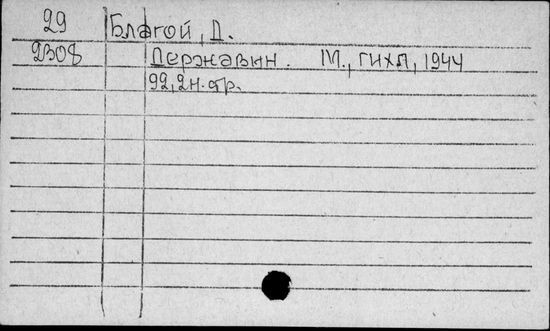 29 Благой, Д.
2308 Державин. М., ГИХЛ, 1944
92, 2н. стр.